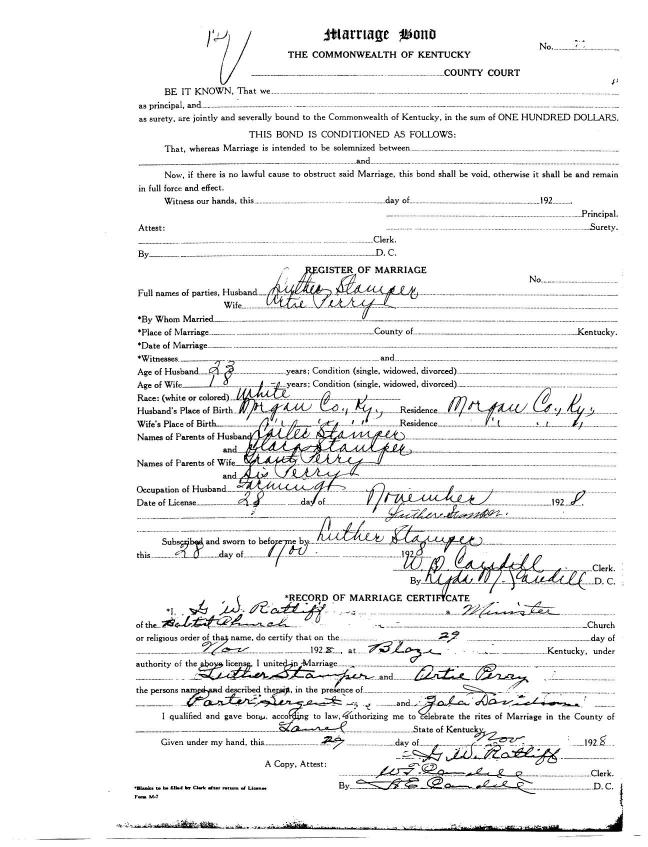 Marriage Bond
THE COMMONWEALTH OF KENTUCKY
No.
COUNTY COURT
BE IT KNOWN, That we
as principal, and
as surety, are jointly and severally bound to the Commonwealth of Kentucky, in the sum of ONE HUNDRED DOLLARS.
THIS BOND IS CONDITIONED AS FOLLOWS:
That, whereas Marriage is intended to be solemnized between
and
Now, if there is no lawful cause to obstruct said Marriage, this bond shall be void, otherwise it shall be and remain
in full force and effect.
Witness our hands, this day of 192
Principal.
Attest: Surety.
Clerk.
By D. C.
REGISTER OF MARRIAGE
No.
Full names of parties, Husband Luther Stamper
Wife Artie Perry
*By Whom Married
*Place of Marriage County of Kentucky.
*Date of Marriage
*Witnesses and
Age of Husband 23 years; Condition (single, widowed, divorced)
Age of Wife 18 years; Condition (single, widowed, divorced)
Race: (white or colored) White
Husband's Place of Birth Morgan Co., Ky, Residence Morgan Co., Ky,
Wife's Place of Birth " " " Residence " " "
Names of Parents of Husband Stamper
and Stamper
Names of Parents of Wife Grant Perry
and Perry
Occupation of Husband Farming
Date of License 28 day of November 1928.
Luther Stamper.
Subscribed and sworn to before me by Luther Stamper
this 28 day of Nov 1928
Clerk.
By D. C.
*RECORD OF MARRIAGE CERTIFICATE
*I, G W. Ratliff a Minister
of the Babtist Church Church
or religious order of that name, do certify that on the 29 day of
Nov 1928, at Blaze Kentucky, under
authority of the above license, I united in Marriage
Luther Stamper and Artie Peray
the persons named and described therein, in the presence of
Porter Sergent and
I qualified and gave bond, according to law, authorizing me to celebrate the rites of Marriage in the County of
State of Kentucky.
Given under my hand, this 29 day of Nov 1928
G. W. Ratliff
A Copy, Attest: Clerk.
By D. C.
*Blanks to be filled by Clerk after return of License
Form M-7